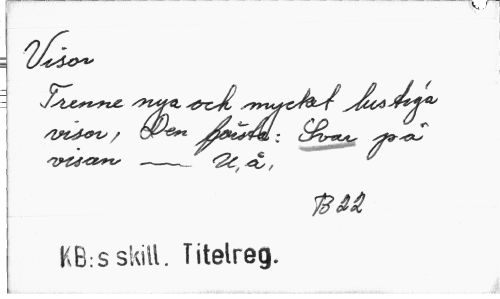 Visor
Trenne nya och mycket lustiga
visor, Den första: Svar på
visan —— U,å,
B 22
KB:s skill. Titelreg.